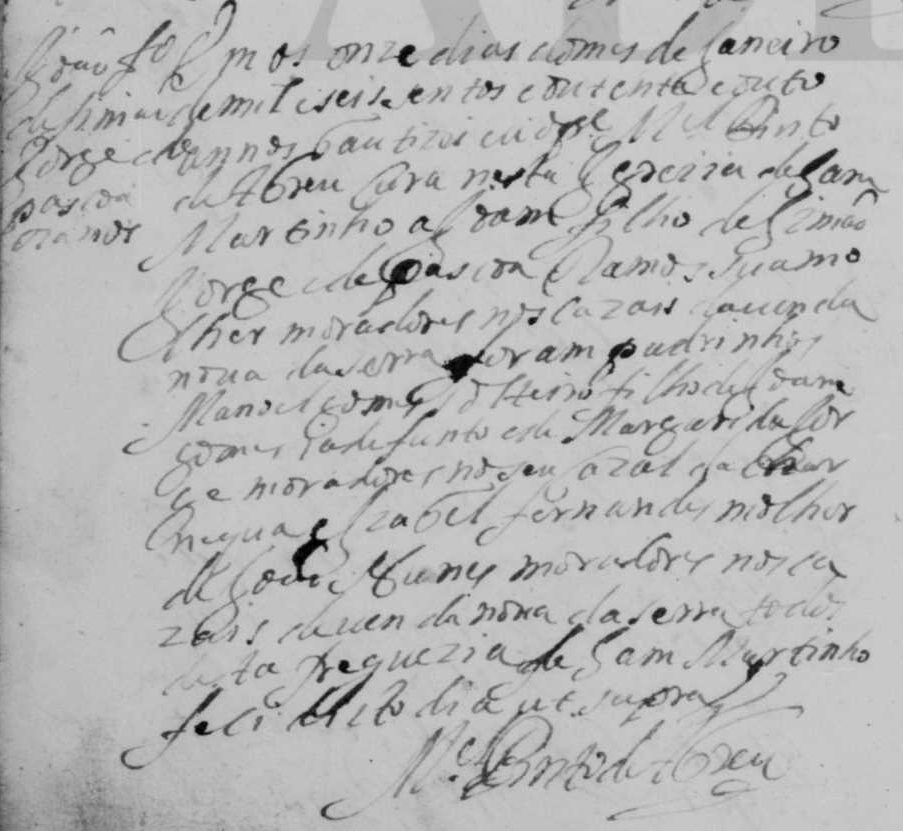 João fo Em os onze dias do mes de Janeiro
de Simão de mil e seis sentos e outenta e outo
Jorge e de annos bautizei eu o pe Mel Pinto
pascoa de Abreu Cura nesta Igreiza de Sam
Ramos Martinho a Joam filho de Simão
Jorge e de Pascoa Ramos sua mo
lher moradores nos Cazais da uenda
noua da serra foram padrinhos
Manoel gomes solteiro filho de Joam
gomes ia defunto e de Margarida Jor
ge moradores no seu Cazal da Char
nequa e Izabel fernandes molher
de João Antunes moradores nos ca
zais da uenda noua da serra todos
desta freguezia de Sam Martinho
feci dicto dia ut supra
Mel Pinto de Abreu